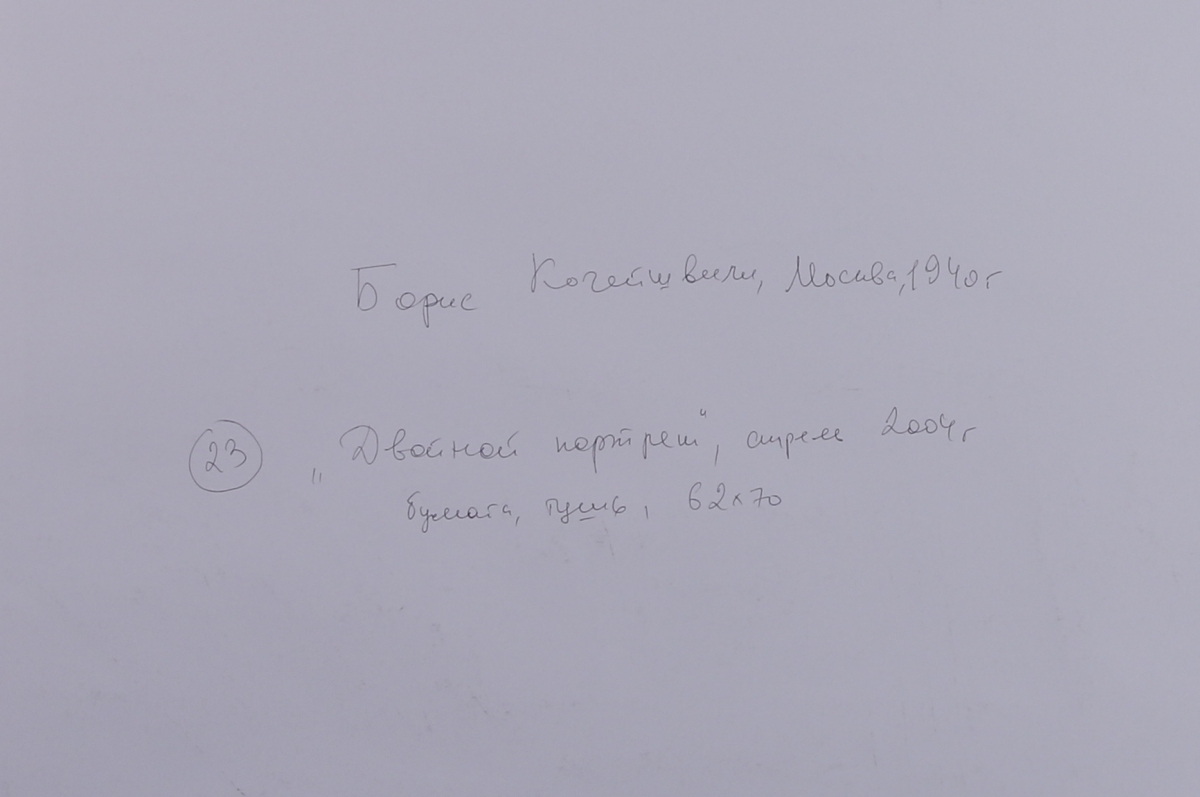 Борис Кочейшвили, Москва, 1940 г
23 „Двойной портрет“, апрель 2004 г
бумага, тушь, 62х70